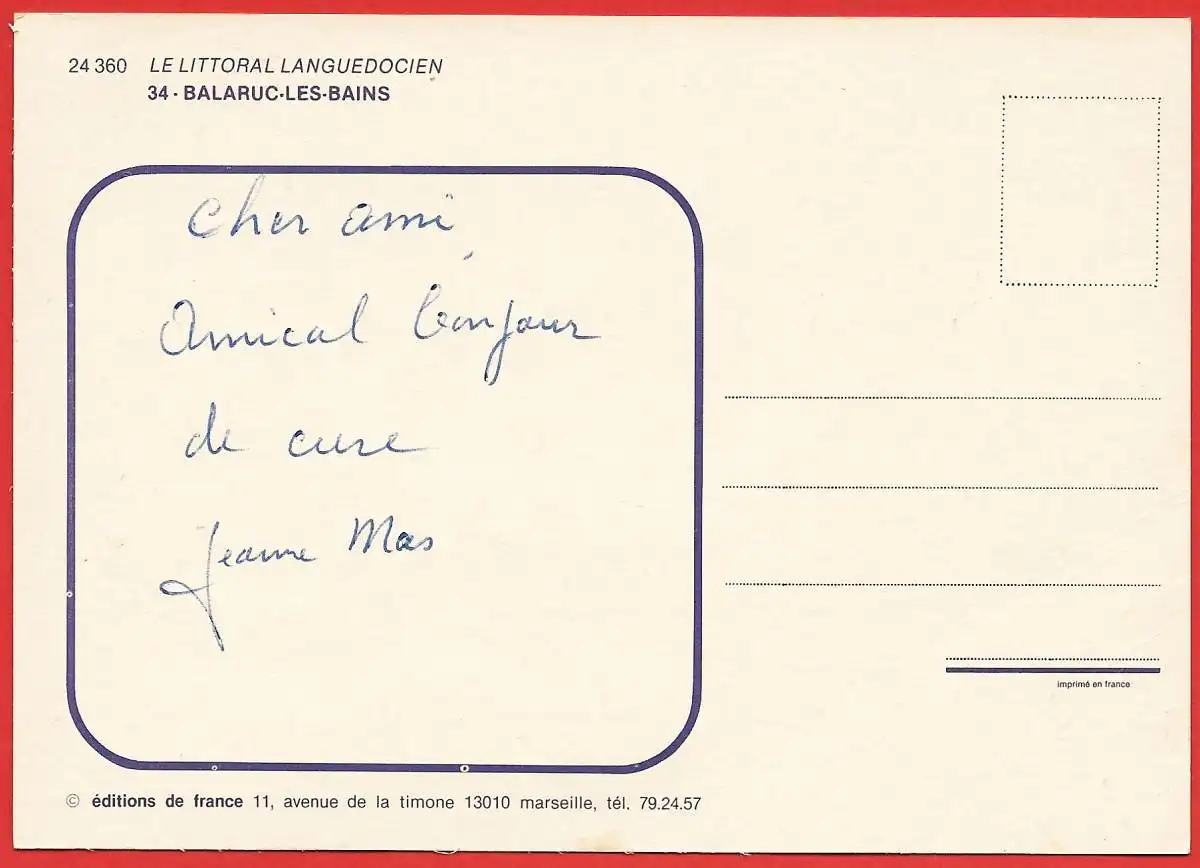 24 360 LE LITTORAL LANGUEDOCIEN
34 - BALARUC-LES-BAINS
Cher ami,
Amical bonjour
de cure
Jeanne Mas
imprimé en france
© éditions de france 11, avenue de la timone 13010 marseille, tél. 79.24.57